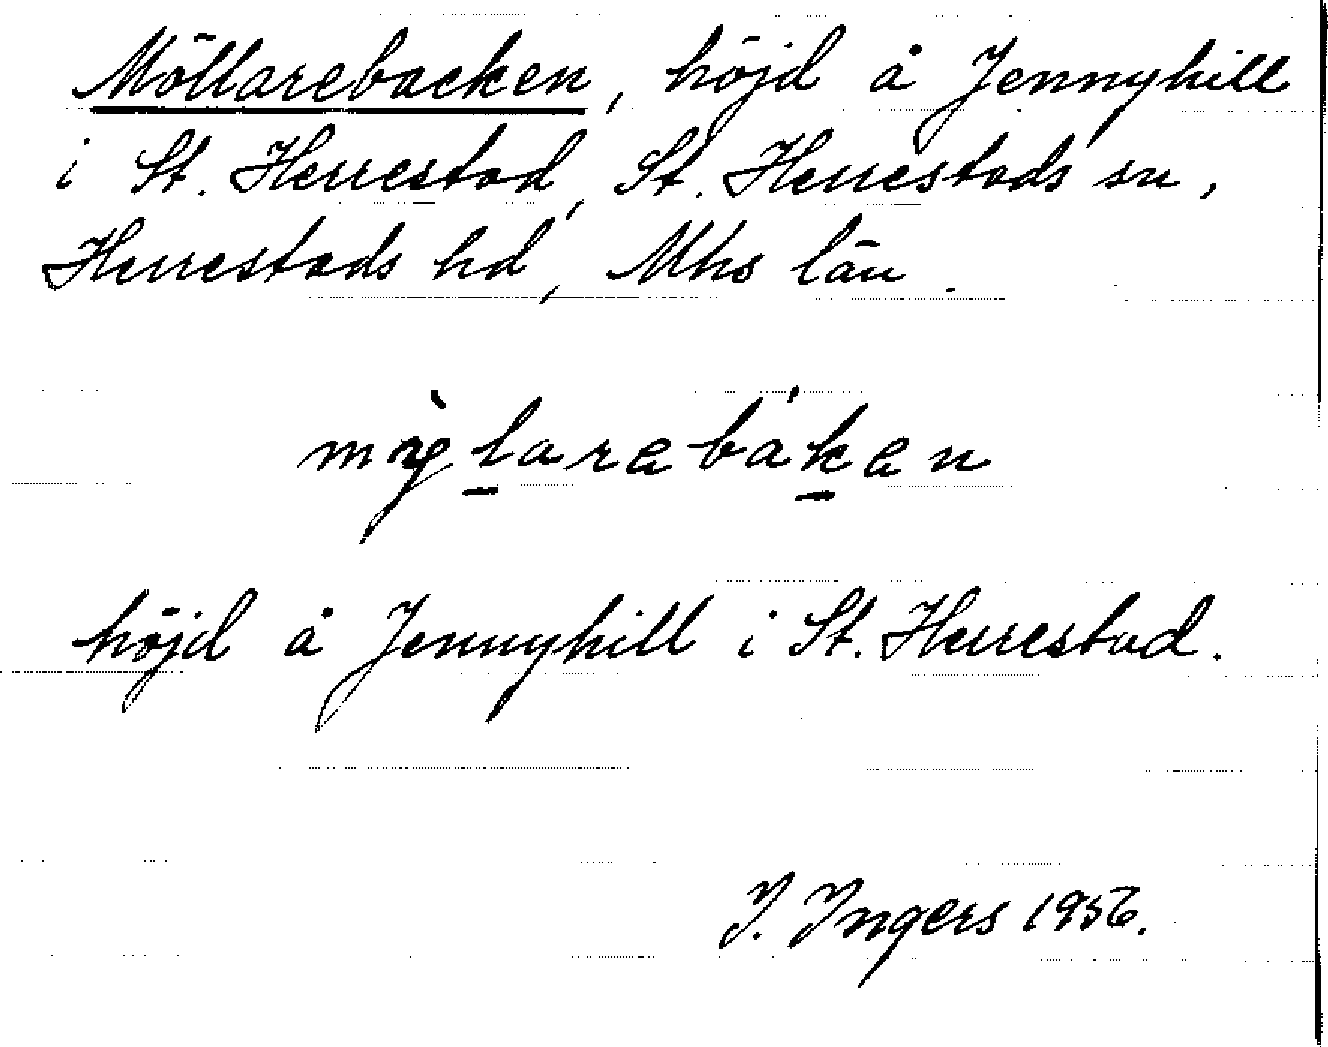 Möllarebacken, höjd å Jennyhill
i St. Herrestad, St. Herrestads sn,
Herrestads hd, Mhs län.
höjd å Jennyhill i St. Herrestad.
I. Ingers 1956.